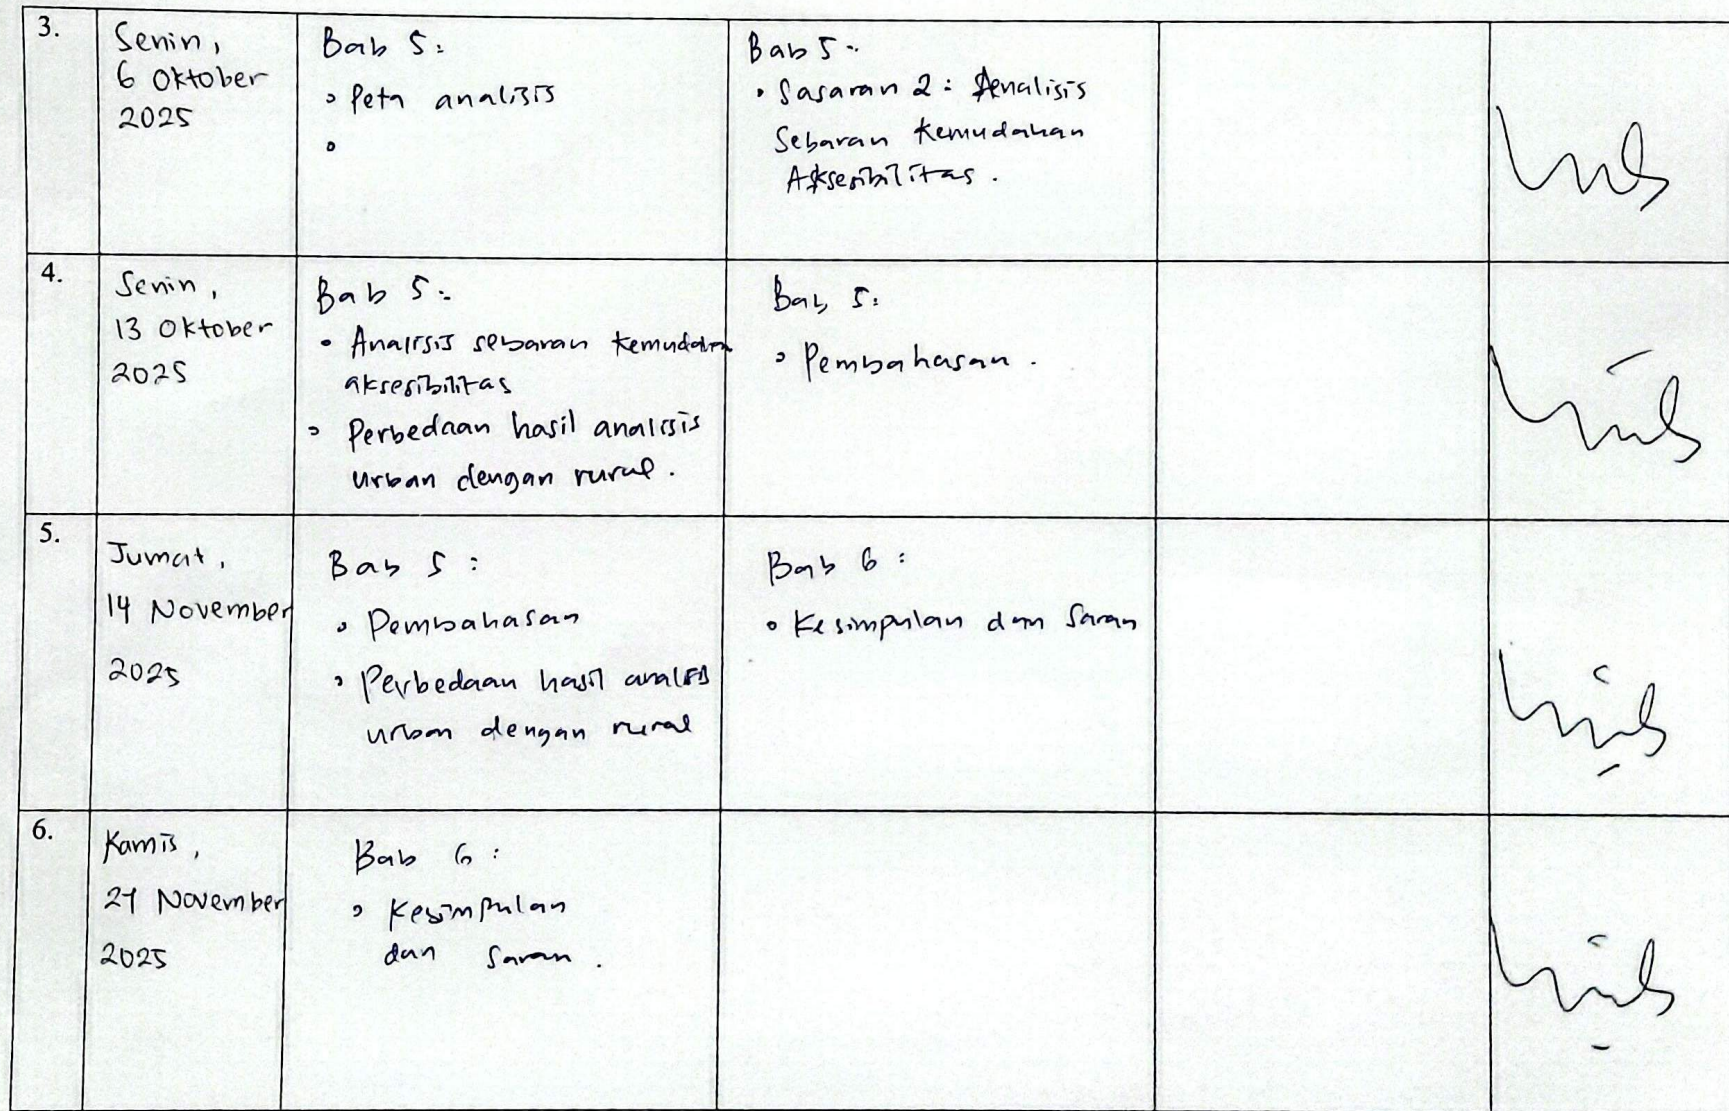 3.
Senin,
6 Oktober
2025
Bab 5:
Peta analisis
Bab 5:
Sasaran 2: Analisis
Sebaran Kemudahan
Aksesibilitas.
4.
Senin,
13 Oktober
2025
Bab 5:
Analisis sebaran kemudahan
aksesibilitas
Perbedaan hasil analisis
urban dengan rural.
Bab 5:
Pembahasan.
5.
Jumat,
14 November
2025
Bab 5:
Pembahasan
Perbedaan hasil analisis
urban dengan rural
Bab 6:
Kesimpulan dan Saran
6.
Kamis,
November
2025
Bab 6:
Kesimpulan
dan Saran.